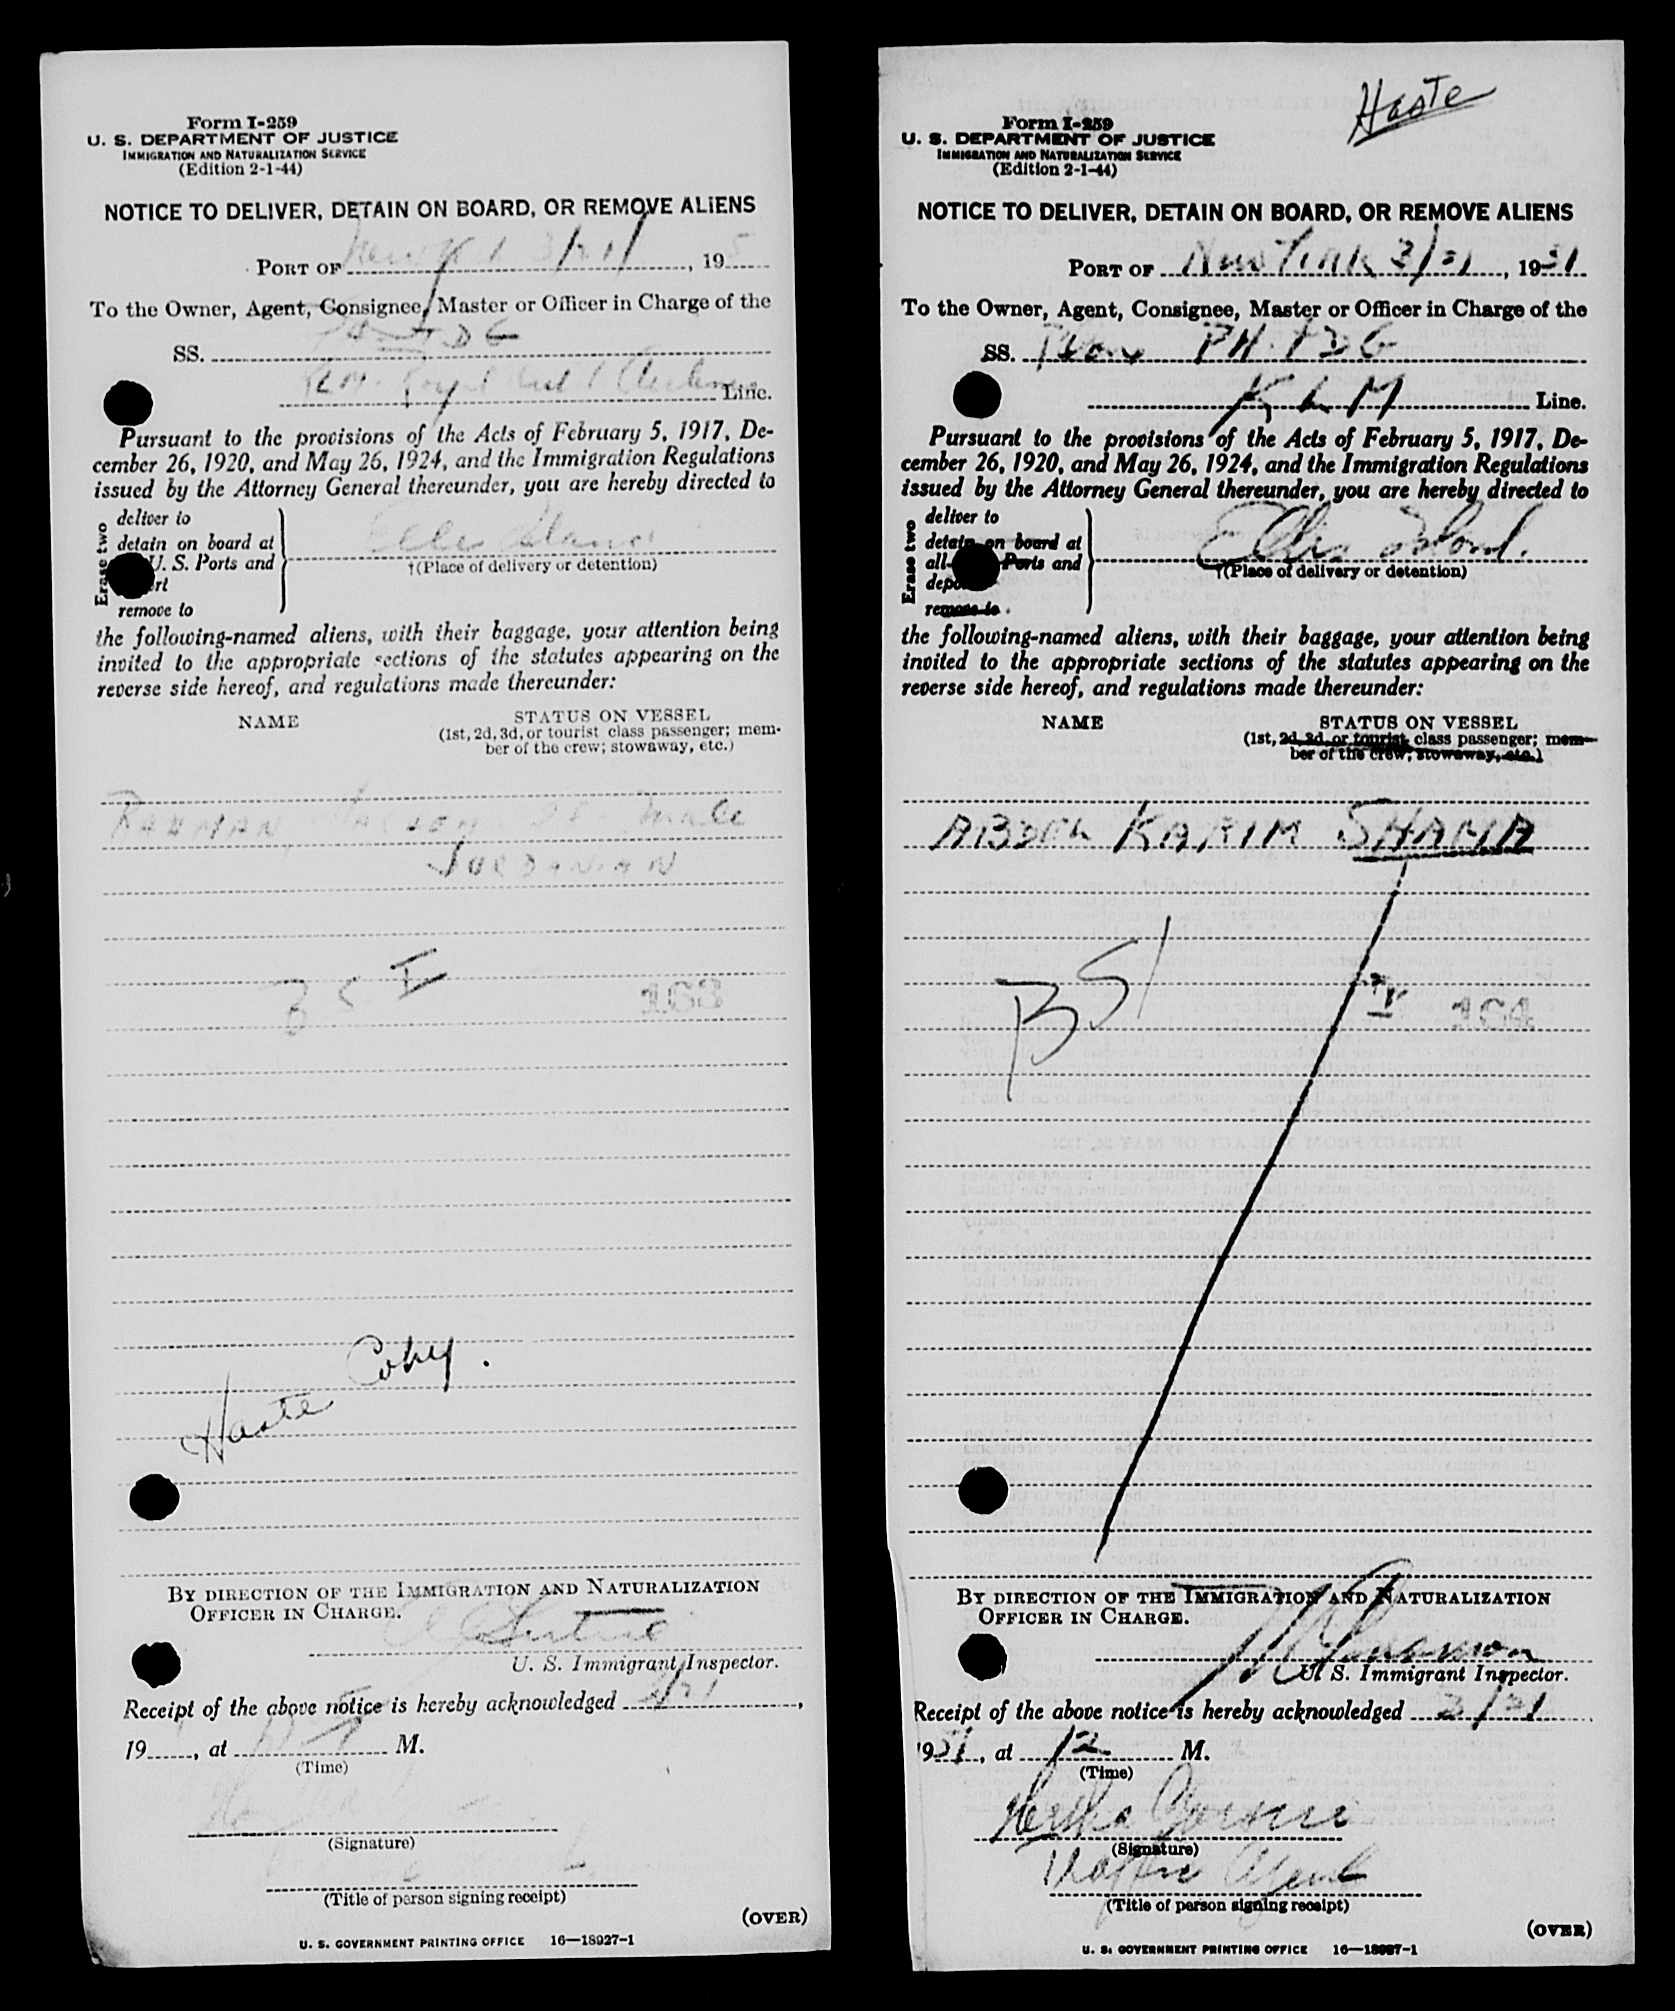 Form I-259
U. S. DEPARTMENT OF JUSTICE
IMMIGRATION AND NATURALIZATION SERVICE
(Edition 2-1-44)
NOTICE TO DELIVER, DETAIN ON BOARD, OR REMOVE ALIENS
PORT OF 3/21, 195
To the Owner, Agent, Consignee, Master or Officer in Charge of the
SS. TDG
KLM Royal Dutch Airlines Line.
Pursuant to the provisions of the Acts of February 5, 1917, De-
cember 26, 1920, and May 26, 1924, and the Immigration Regulations
issued by the Attorney General thereunder, you are hereby directed to
Erase two
deliver to
detain on board at
U. S. Ports and
remove to
Ellis Island
†(Place of delivery or detention)
the following-named aliens, with their baggage, your attention being
invited to the appropriate sections of the statutes appearing on the
reverse side hereof, and regulations made thereunder:
NAME STATUS ON VESSEL
(1st, 2d, 3d, or tourist class passenger; mem-
ber of the crew; stowaway, etc.)
RAHMAN male
JORDANIAN
B S I 163
Haste Copy.
BY DIRECTION OF THE IMMIGRATION AND NATURALIZATION
OFFICER IN CHARGE.
U. S. Immigrant Inspector.
Receipt of the above notice is hereby acknowledged 3/21,
19, at M.
(Time)
(Signature)
(Title of person signing receipt)
(OVER)
U. S. GOVERNMENT PRINTING OFFICE 16—18927-1
Haste
Form I-259
U. S. DEPARTMENT OF JUSTICE
IMMIGRATION AND NATURALIZATION SERVICE
(Edition 2-1-44)
NOTICE TO DELIVER, DETAIN ON BOARD, OR REMOVE ALIENS
PORT OF New York 3/21, 1951
To the Owner, Agent, Consignee, Master or Officer in Charge of the
SS. Plane PH-TDG
KLM Line.
Pursuant to the provisions of the Acts of February 5, 1917, De-
cember 26, 1920, and May 26, 1924, and the Immigration Regulations
issued by the Attorney General thereunder, you are hereby directed to
Erase two
deliver to
detain on board at
all Ports and
remove to
Ellis Island.
†(Place of delivery or detention)
the following-named aliens, with their baggage, your attention being
invited to the appropriate sections of the statutes appearing on the
reverse side hereof, and regulations made thereunder:
NAME STATUS ON VESSEL
(1st, 2d, 3d, or tourist class passenger; mem-
ber of the crew; stowaway, etc.)
ABDEL KARIM SHAMA
BSI 164
BY DIRECTION OF THE IMMIGRATION AND NATURALIZATION
OFFICER IN CHARGE.
U. S. Immigrant Inspector.
Receipt of the above notice is hereby acknowledged 3/21
1951, at 12 M.
(Time)
(Signature)
Agent
(Title of person signing receipt)
(OVER)
U. S. GOVERNMENT PRINTING OFFICE 16—18927-1